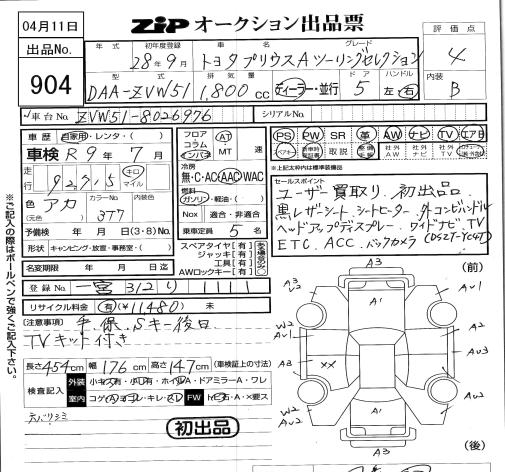 04月11日
ZIP オークション出品票
出品No.
904
年式 初年度登録 車名 グレード
28年9月 トヨタプリウスAツーリングセレクション
型式 排気量 ドア ハンドル
DAA-ZVW51 1,800cc ディーラー・並行 5 左・右
評価点
4
内装
B
車台No. ZVW51-8026976
シリアルNo.
車歴 自家用・レンタ・( )
車検 R9年7月
走行 キロ マイル
色 アカ カラーNo. 377 内装色
(元色)
予備検 年 月 日 (3・8) No.
形状 キャンピング・放置・事務室・( )
名変期限 年 月 日迄
登録No. 一宮 312 り 1111
リサイクル料金 有(¥11,480) 未
フロア コラム インパネ AT MT 速
冷房
無・C・AC・AAC・WAC
燃料
ガソリン・軽油・( )
Nox 適合・非適合
乗車定員 5 名
スペアタイヤ[有・無]
ジャッキ[有・無]
工具[有・無]
AWロックキー[有・無]
PS PW SR 革 AW ナビ TV エアB
取説 社外AW 社外ナビ 社外TV
※上記太枠内は標準装備品
セールスポイント
ユーザー買取り、初出品
黒レザーシート シートヒーター 外コンビハンドル
ヘッドアップディスプレー ワイドナビ、TV
ETC、ACC、バックカメラ(DSZT-YC4T)
[注意事項] 手、保、Sキー後日
TVキット付き
長さ454cm 幅176cm 高さ147cm (車検証上の寸法)
検査記入
外装 小キズ有・小凹有・ホイルA・ドアミラーA・ワレ
室内 コゲ・穴・ヨゴレ・キレ・スレ FW トビ石・A・×要ス
初出品
※ご記入の際はボールペンで強くご記入下さい。
(前)
A3
A3
A1
AU1
W2
AU1
A2
A3
××
AU3
W2
AU2
A1
A3
(後)